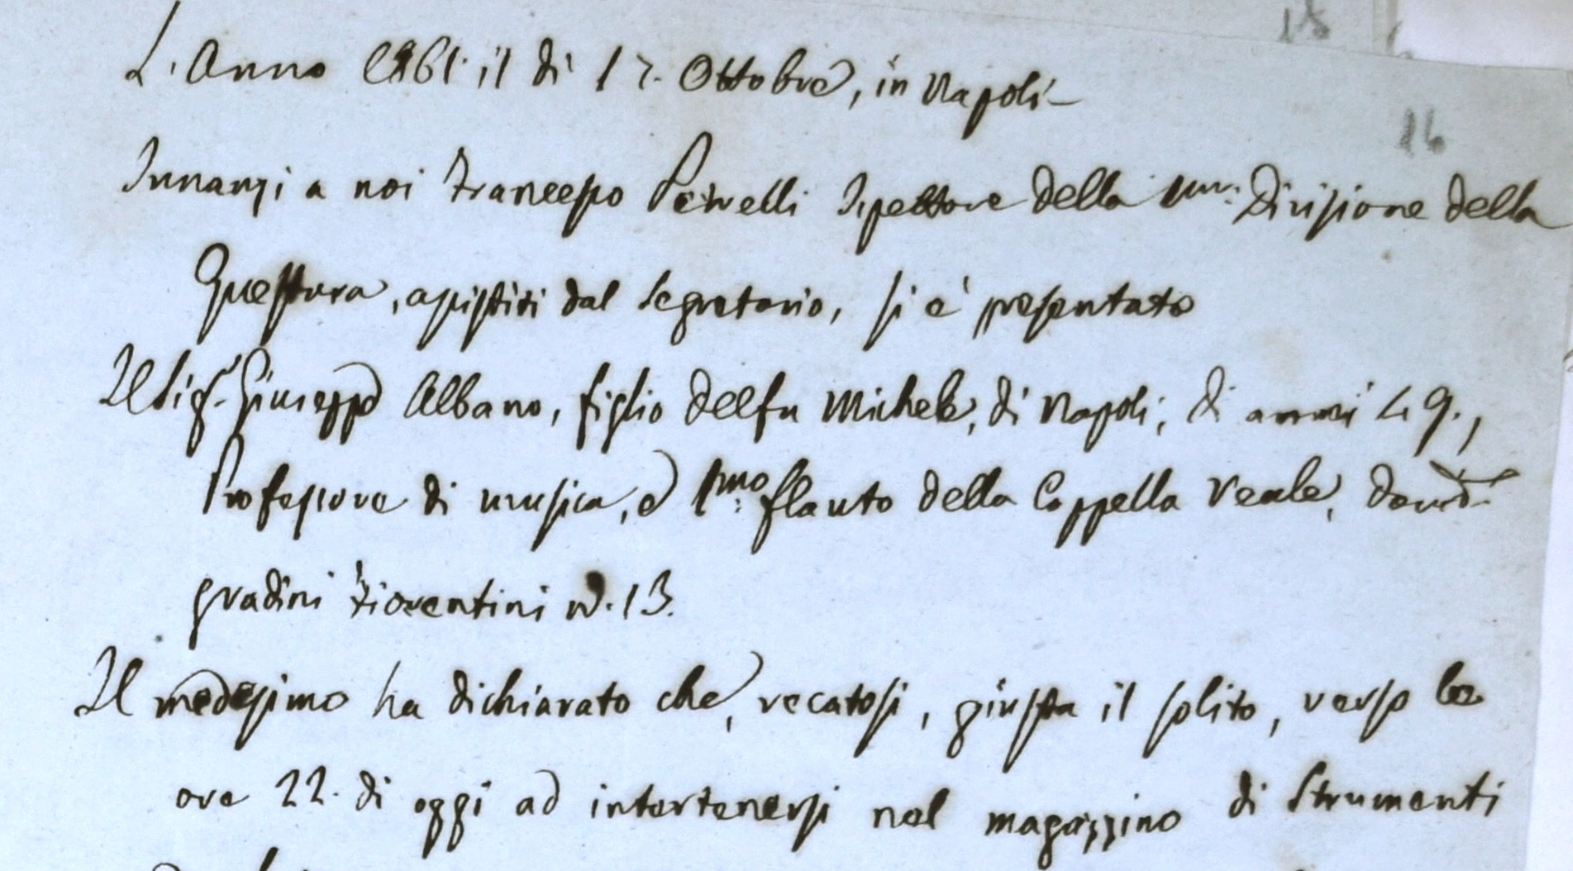 16
L'Anno 1861 il dì 17. Ottobre, in Napoli—
Innanzi a noi Francesco Petrelli Ispettore della Divisione della
Questura, assistiti dal Segretario, si è presentato
Il Sigr. Giuseppe Albano, figlio del fu Michele, di Napoli, di anni 49.,
Professore di musica, e 1mo: flauto della Cappella reale, domto.
gradini Fiorentini N. 13.
Il medesimo ha dichiarato che, recatosi, giusta il solito, verso le
ore 22. di oggi ad intertenersi nel magazzino di Strumenti